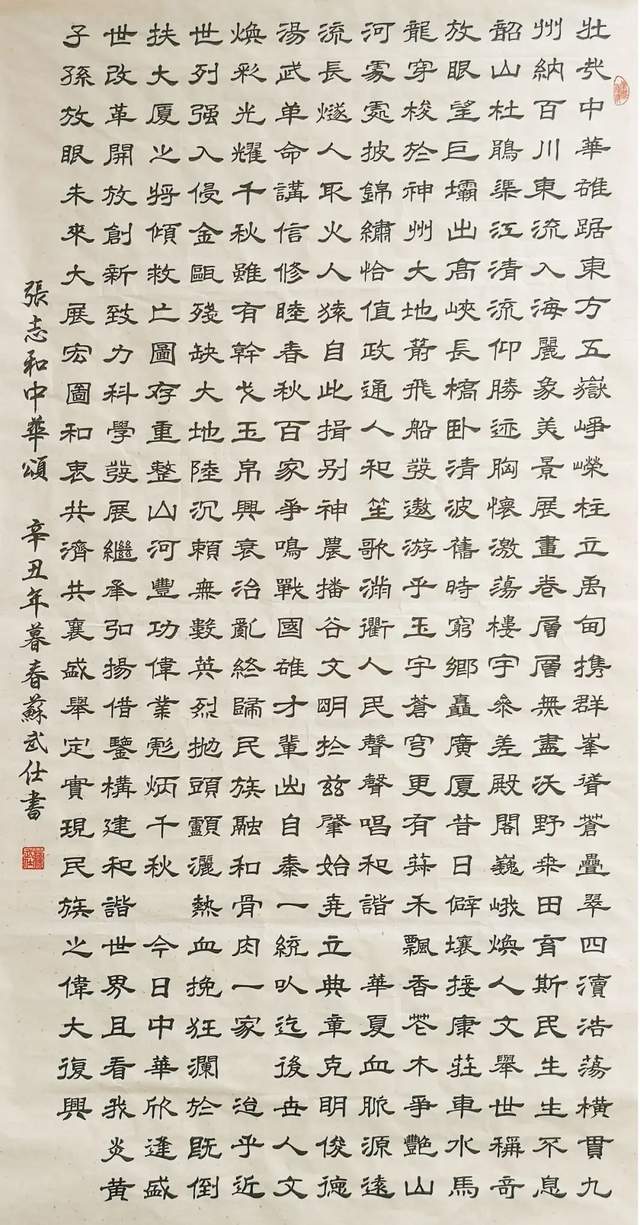 壯哉中華雄踞東方五嶽崢嶸柱立禹甸擕群峯聳蒼疊翠四瀆浩蕩橫貫九
州納百川東流入海麗象美景展畫卷層層無盡沃野桑田育斯民生生不息
韶山杜鵑渠江清流仰勝迹胸懷激蕩樓宇參差殿閣巍峨煥人文舉世稱奇
放眼望巨壩出高峽長橋卧清波舊時窮鄉矗廣厦昔日僻壤接康莊車水馬
龍穿梭於神州大地箭飛船發遨游乎玉宇蒼穹更有禾飄香花木爭艷山
河處處披錦繡恰值政通人和笙歌滿衢人民聲聲唱和諧 華夏血脈源遠
流長燧人取火人猿自此揖別神農播谷文明於兹肇始堯立典章克明俊德
湯武革命講信修睦春秋百家爭鳴戰國雄才輩出自秦一統以迄後世人文
煥彩光耀千秋雖有幹戈玉帛興衰治亂終歸民族融和骨肉一家 迨乎近
世列强入侵金甌殘缺大地陸沉賴無數英烈抛頭顱灑熱血挽狂瀾於既倒
扶大厦之將傾救亡圖存重整山河豐功偉業彪炳千秋 今日中華欣逢盛
世改革開放創新致力科學發展繼承弘揚借鑒構建和諧世界且看我炎黃
子孫放眼未來大展宏圖和衷共濟共襄盛舉定實現民族之偉大復興
張志和中華頌 辛丑年暮春蘇武仕書